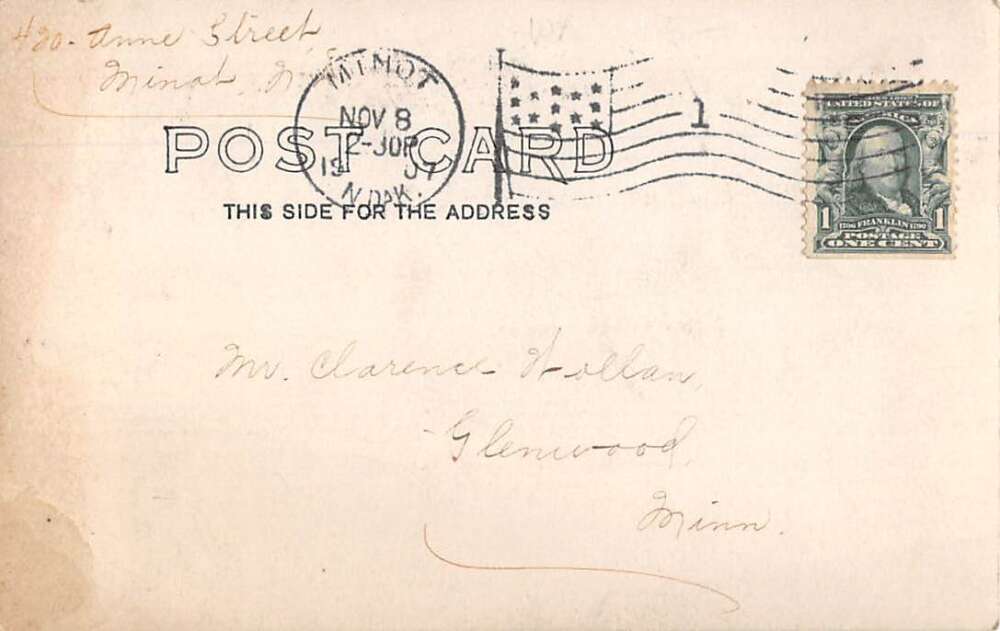 420. Anne Street
Minot, N.
MINOT
NOV 8
2-30P
19 07
N. DAK.
1
POST CARD
THIS SIDE FOR THE ADDRESS
UNITED STATES OF
AMERICA
1 1706 FRANKLIN 1790 1
POSTAGE
ONE CENT
Mr. Clarence Hollan,
Glenwood,
Minn.